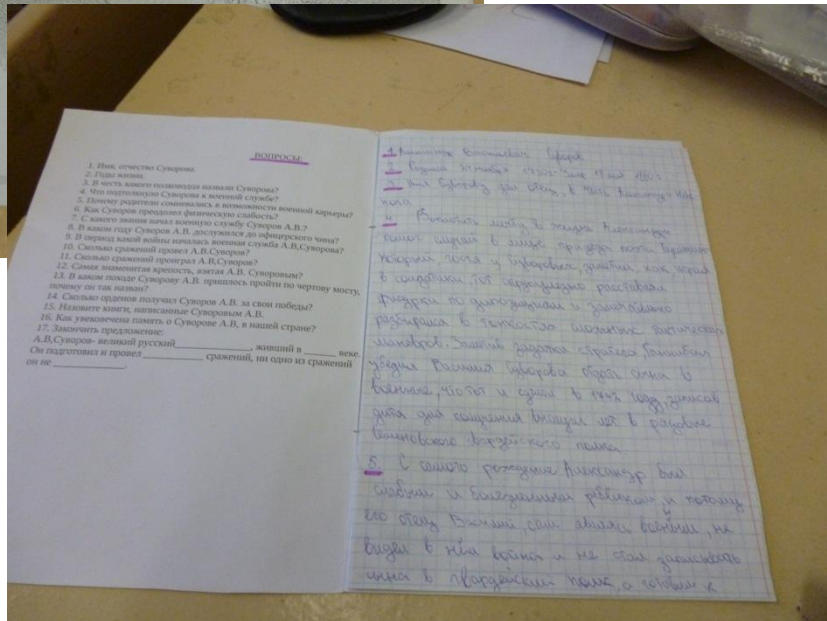 ВОПРОСЫ:
1. Имя, отчество Суворова.
2. Годы жизни.
3. В честь какого полководца назвали Суворова?
4. Что подтолкнуло Суворова к военной службе?
5. Почему родители сомневались в возможности военной карьеры?
6. Как Суворов преодолел физическую слабость?
7. С какого звания начал военную службу Суворов А.В.?
8. В каком году Суворов А.В. дослужился до офицерского чина?
9. В период какой войны началась военная служба А.В,Суворова?
10. Сколько сражений провел А.В,Суворов?
11. Сколько сражений проиграл А.В,Суворов?
12. Самая знаменитая крепость, взятая А.В. Суворовым?
13. В каком походе Суворову А.В. пришлось пройти по чертову мосту,
почему он так назван?
14. Сколько орденов получил Суворов А.В. за свои победы?
15. Назовите книги, написанные Суворовым А.В.
16. Как увековечена память о Суворове А,В, в нашей стране?
17. Закончить предложение:
А.В,Суворов- великий русский_______________, живший в ______ веке.
Он подготовил и провел____________ сражений, ни одно из сражений
он не ______________.
1. Александр Васильевич Суворов
2. Родился
3. Имя Суворову дал отец, в честь Александра Нев-
4. в жизни Александра
помог случай в лице приезда поэта
который гостя у Суворовых заметил, как, играя
в солдатики, тот расставлял
фигурки по и замечательно
разбирался в тонкостях сложных тактических
маневров. Заметив задатки стратега, Ганнибал
убедил Василия Суворова отдать сына в
военные, что тот и сделал в 1742 году, записав
дитя для лет в рядовые
Семёновского полка
5. С самого рождения Александр был
слабым и болезненным ребёнком, и потому
его отец Василий, сам являясь военным, не
видел в нём воина и не стал записывать
сына в гвардейский полк, а готовил к